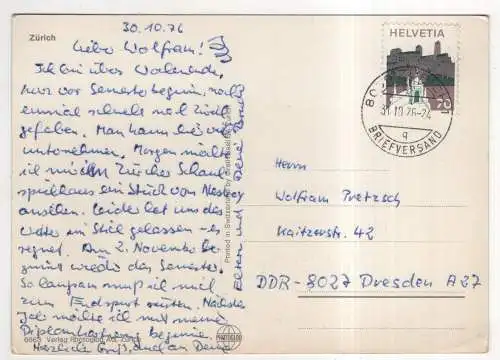 Zürich
30.10.76
Liebe Wolfram!
Ich bin übers Wochenende,
kurz vor Semesterbeginn, noch
einmal schnell nach Zürich
gefahren. Man kann hier viel
unternehmen. Morgen möchte
ich mir im Zürcher Schau-
spielhaus ein Stück von Nestroy
ansehen. Leider hat uns das
Wetter im Stich gelassen - es
regnet. Am 2. November be-
ginnt wieder das Semester.
So langsam muß ich mich
zum Endspurt rüsten. Nächstes
Jahr möchte ich mit meiner
Diplomarbeit beginnen.
Herzliche Grüße, auch an Deine
Eltern und
HELVETIA
20
31.10.76-24
BRIEFVERSAND
q
Herrn
Wolfram Pretzsch
Kaitzerstr. 42
DDR-8027 Dresden A27
Printed in Switzerland by
Verlag Photoglob AG, Zürich
PHOTOGLOB